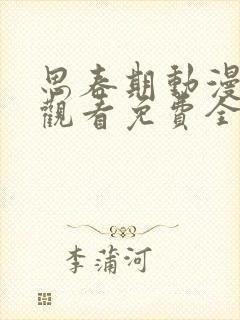 思春期動漫
觀看免費全
李蒲河